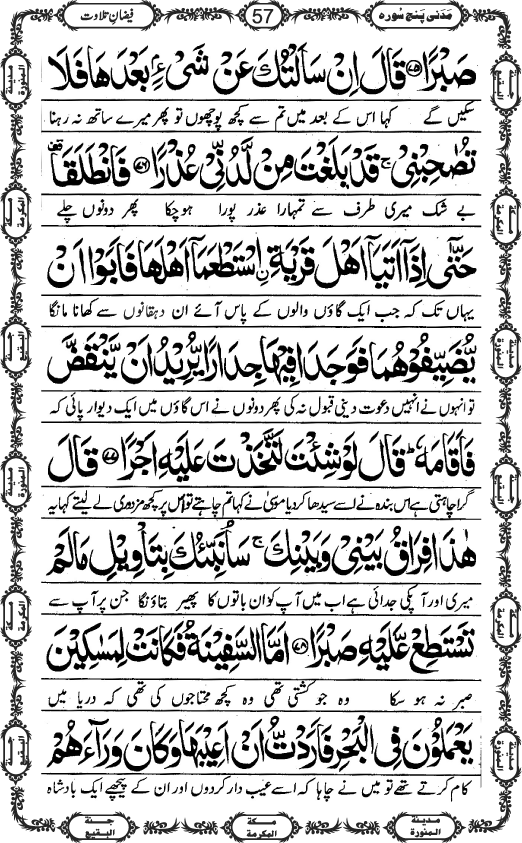 مَدَنی پَنج سُورہ
57
فیضانِ تلاوت
صَبْرًا ﴿۷۵﴾ قَالَ اِنْ سَاَلْتُكَ عَنْ شَیْءٍۭ بَعْدَهَا فَلَا
سکیں گے کہا اس کے بعد میں تم سے کچھ پوچھوں تو پھر میرے ساتھ نہ رہنا
تُصٰحِبْنِیْ ۚ قَدْ بَلَغْتَ مِنْ لَّدُنِّیْ عُذْرًا ﴿۷۶﴾ فَانْطَلَقَا ٝ
بے شک میری طرف سے تمہارا عذر پورا ہوچکا پھر دونوں چلے
حَتّٰۤی اِذَاۤ اَتَیَاۤ اَهْلَ قَرْیَةِ ِ۟اسْتَطْعَمَاۤ اَهْلَهَا فَاَبَوْا اَنْ
یہاں تک کہ جب ایک گاؤں والوں کے پاس آئے ان دہقانوں سے کھانا مانگا
یُّضَیِّفُوْهُمَا فَوَجَدَا فِیْهَا جِدَارًا یُّرِیْدُ اَنْ یَّنْقَضَّ
تو انہوں نے انہیں دعوت دینی قبول نہ کی پھر دونوں نے اس گاؤں میں ایک دیوار پائی کہ
فَاَقَامَهٗ ؕ قَالَ لَوْ شِئْتَ لَتَّخَذْتَ عَلَیْهِ اَجْرًا ﴿۷۷﴾ قَالَ
گرا چاہتی ہے اس بندہ نے اسے سیدھا کردیا موسیٰ نے کہا تم چاہتے تو اس پر کچھ مزدوری لے لیتے کہا یہ
هٰذَا فِرَاقُ بَیْنِیْ وَ بَیْنِكَ ۚ سَاُنَبِّئُكَ بِتَاْوِیْلِ مَا لَمْ
میری اور آپکی جدائی ہے اب میں آپ کو ان باتوں کا پھیر بتاؤنگا جن پر آپ سے
تَسْتَطِعْ عَّلَیْهِ صَبْرًا ﴿۷۸﴾ اَمَّا السَّفِیْنَةُ فَكَانَتْ لِمَسٰكِیْنَ
صبر نہ ہو سکا وہ جو کشتی تھی وہ کچھ محتاجوں کی تھی کہ دریا میں
یَعْمَلُوْنَ فِی الْبَحْرِ فَاَرَدْتُّ اَنْ اَعِیْبَهَا وَ كَانَ وَرَآءَهُمْ
کام کرتے تھے تو میں نے چاہا کہ اسے عیب دار کردوں اور ان کے پیچھے ایک بادشاہ
مدینۃ المنورۃ
مکۃ المکرمۃ
جنۃ البقیع